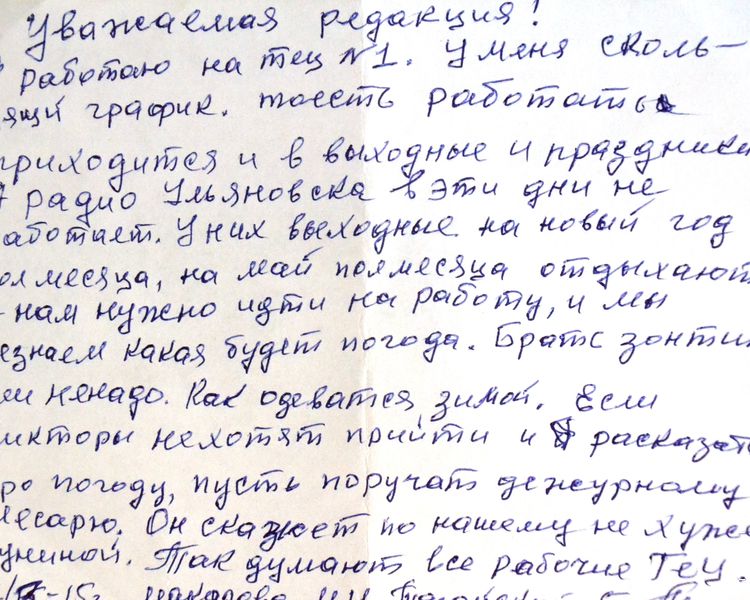 Уважаемая редакция!
работаю на тец №1. У меня сколь-
ящй график. тоесть работать
приходится и в выходные и праздники
А радио Ульяновска в эти дни не
аботает. У них выходные на новый год
олмесяца, на май полмесяца отдыхают
нам нужно идти на работу, и мы
езнаем какая будет погода. Братс зонтик
ли ненадо. Как одеватся зимой. Если
икторы нехотят прийти и расказать
ро погоду, пусть поручат дежурному
лесарю. Он скажет по нашему не хуже
униной. Так думают все рабочие ТЕЦ.